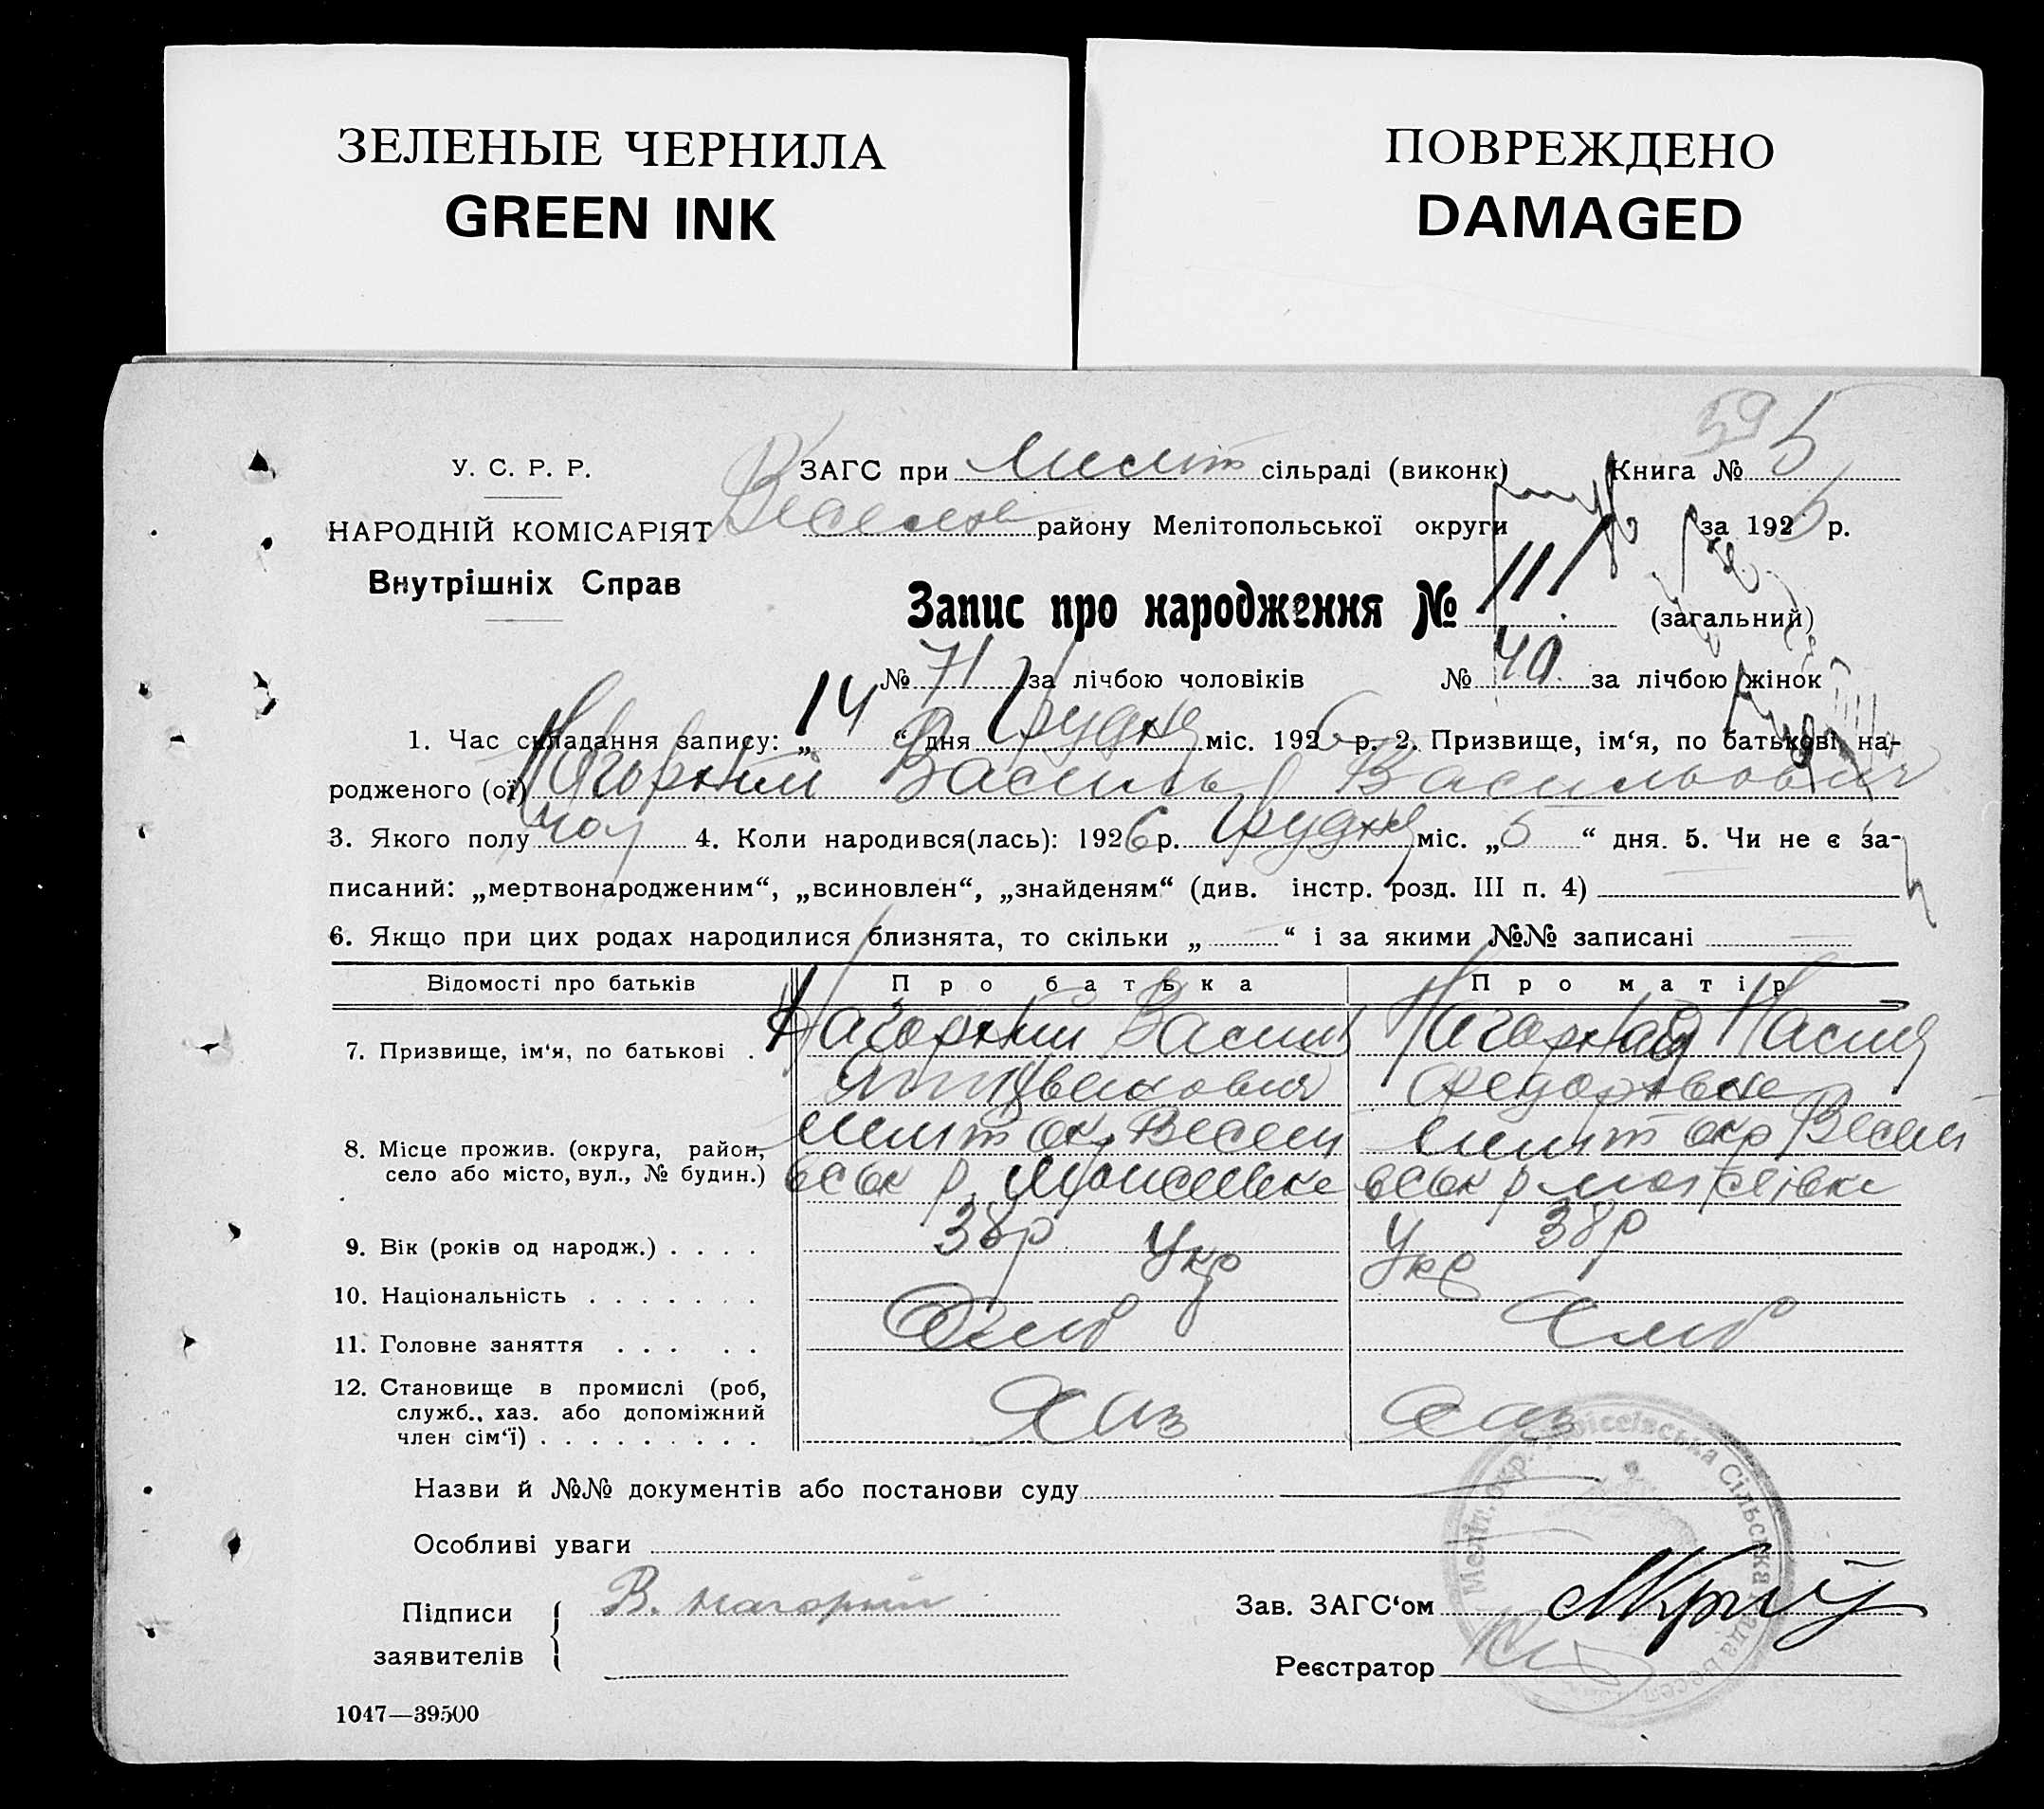 ЗЕЛЕНЫЕ ЧЕРНИЛА
GREEN INK
ПОВРЕЖДЕНО
DAMAGED
59
У. С. Р. Р.
ЗАГС при сільраді (виконк) Книга № 5
НАРОДНІЙ КОМІСАРІЯТ
району Мелітопольської округи за 192 р.
Внутрішніх Справ
Запис про народження № 111 (загальний)
№ 71 за лічбою чоловіків № 40 за лічбою жінок
1. Час складання запису: „ 14 “ дня Грудня міс. 1926 р. 2. Призвище, ім‘я, по батькові на-
родженого (ої) Нагорний Василь Васильович
3. Якого полу чол 4. Коли народився(лась): 1926 р. Грудня міс. „ 5 “ дня. 5. Чи не є за-
писаний: „мертвонародженим“, „всиновлен“, „знайденям“ (див. інстр. розд. III п. 4)
6. Якщо при цих родах народилися близнята, то скільки „ “ і за якими №№ записані
Відомості про батьків Про батька Про матір
7. Призвище, ім‘я, по батькові . Нагорний Васил Нагорная Насия
8. Місце прожив. (округа, район, Мелит ок Весели Мелит окр Весели
село або місто, вул., № будин.) р. Моисеевка р
9. Вік (років од народж.) . . . . 38р 38р
Укр Укр
10. Національність . . . . . . .
11. Головне заняття . . . . . Хліб Хліб
12. Становище в промислі (роб,
служб., хаз. або допоміжний Хаз Хаз
член сім‘ї) . . . . . . . . .
Назви й №№ документів або постанови суду
Особливі уваги
Підписи В. Нагорний
заявителів
Зав. ЗАГС‘ом
Реєстратор
Сільська Рада
1047—39500